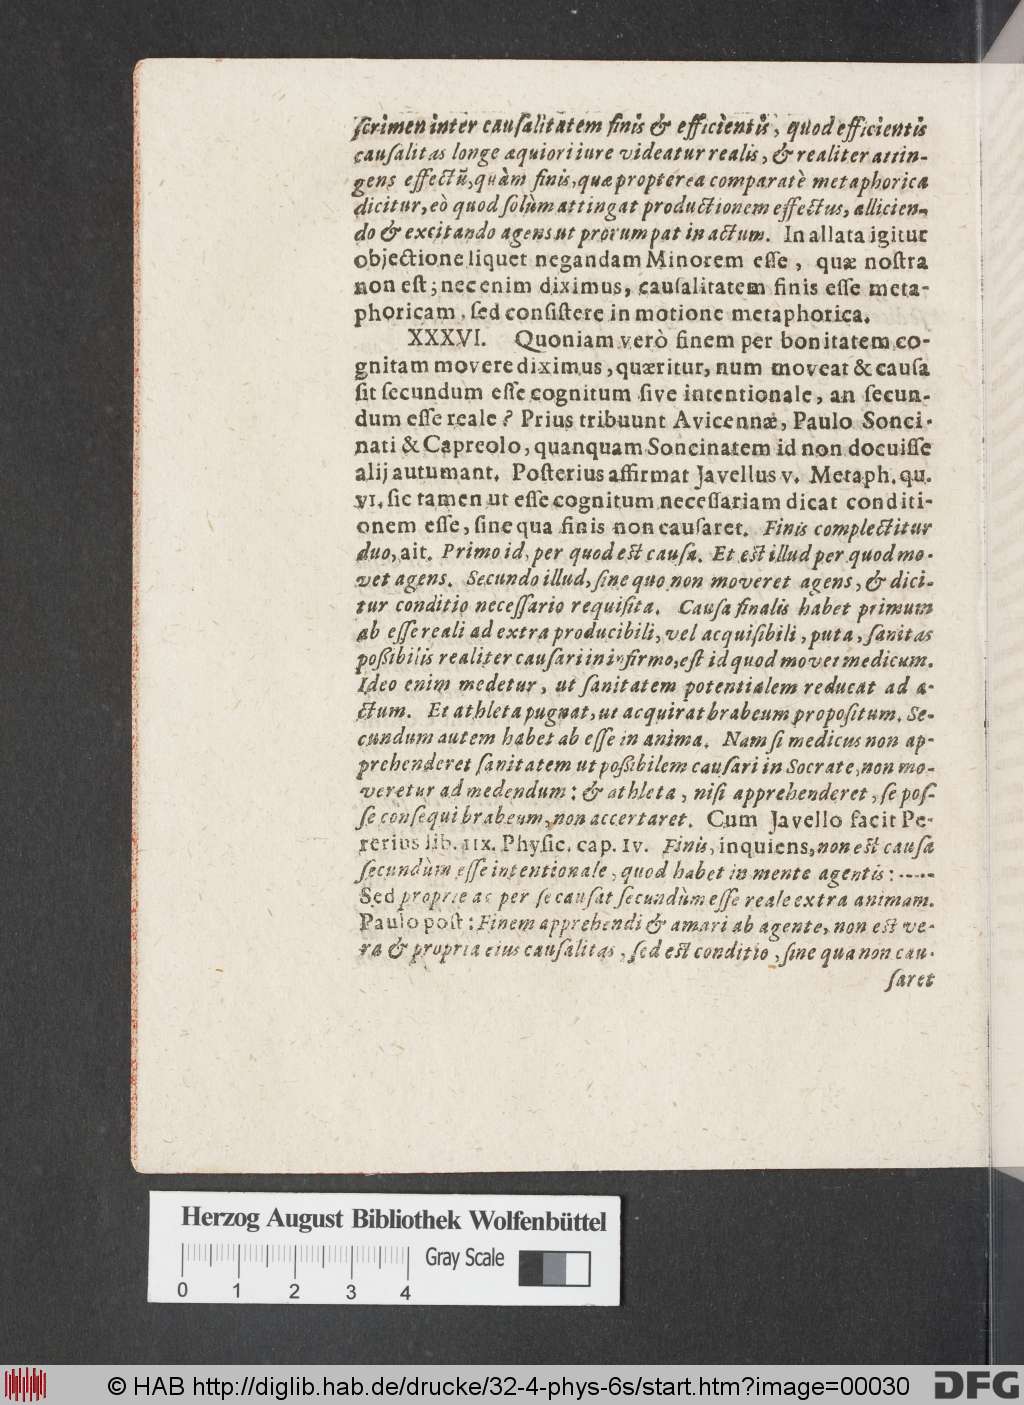 scrimen inter causalitatem finis & efficientis, quod efficientis
causalitas longe aequiori iure videatur realis, & realiter attin-
gens effectũ, quàm finis, quae propterea comparatè metaphorica
dicitur, eò quod solùm attingat productionem effectus, allicien-
do & excitando agens ut prorumpat in actum. In allata igitur
objectione liquet negandam Minorem esse, quæ nostra
non est; nec enim diximus, causalitatem finis esse meta-
phoricam, sed consistere in motione metaphorica.
XXXVI. Quoniam verò finem per bonitatem co-
gnitam movere diximus, quæritur, num moveat & causa
sit secundum esse cognitum sive intentionale, an secun-
dum esse reale? Prius tribuunt Avicennæ, Paulo Sonci-
nati & Capreolo, quanquam Soncinatem id non docuisse
alij autumant. Posterius affirmat Javellus v. Metaph. qu.
vi. sic tamen ut esse cognitum necessariam dicat conditi-
onem esse, sine qua finis non causaret. Finis complectitur
duo, ait. Primo id, per quod est causa. Et est illud per quod mo-
vet agens. Secundo illud, sine quo non moveret agens, & dici-
tur conditio necessario requisita. Causa finalis habet primum
ab esse reali ad extra producibili, vel acquisibili, puta, sanitas
possibilis realiter causari in infirmo, est id quod movet medicum.
Ideo enim medetur, ut sanitatem potentialem reducat ad a-
ctum. Et athleta pugnat, ut acquirat brabeum propositum. Se-
cundum autem habet ab esse in anima. Nam si medicus non ap-
prehenderet sanitatem ut possibilem causari in Socrate, non mo-
veretur ad medendum: & athleta, nisi apprehenderet, se pos-
se consequi brabeum, non accertaret. Cum Javello facit Pe-
rerius lib. iix. Physic. cap. iv. Finis, inquiens, non est causa
secundùm esse intentionale, quod habet in mente agentis: -----
Sed proprie ac per se causat secundùm esse reale extra animam.
Paulo post: Finem apprehendi & amari ab agente, non est ve-
ra & propria eius causalitas, sed est conditio, sine qua non cau-
saret
Herzog August Bibliothek Wolfenbüttel
Gray Scale
0 1 2 3 4
© HAB http://diglib.hab.de/drucke/32-4-phys-6s/start.htm?image=00030
DFG